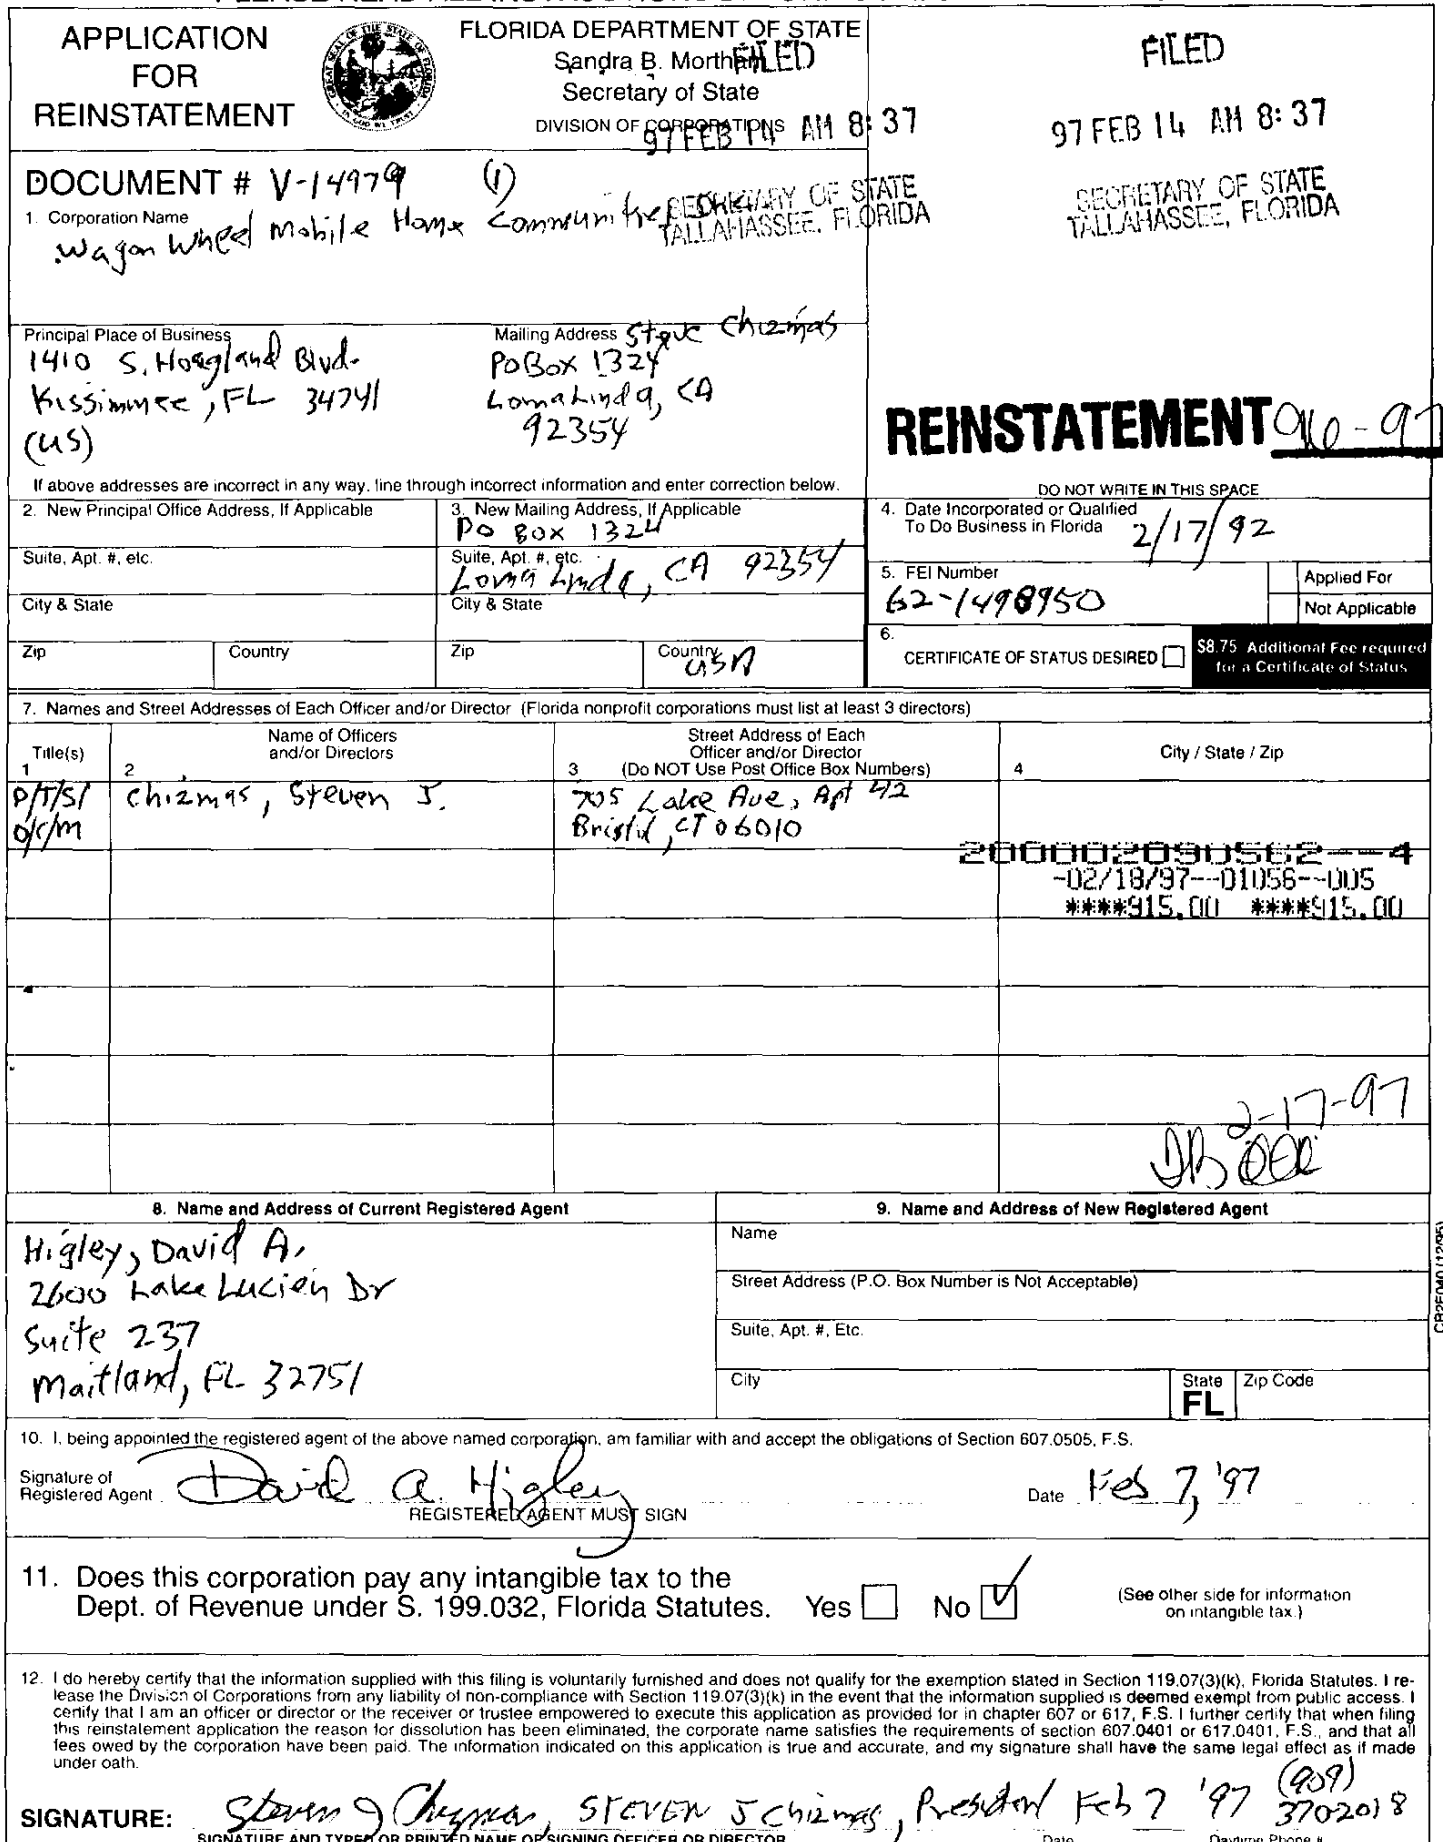 APPLICATION
FOR
REINSTATEMENT
FLORIDA DEPARTMENT OF STATE
Sandra B. Mortham
Secretary of State
DIVISION OF CORPORATIONS
FILED
97 FEB 14 AM 8:37
SECRETARY OF STATE
TALLAHASSEE, FLORIDA
FILED
97 FEB 14 AM 8:37
SECRETARY OF STATE
TALLAHASSEE, FLORIDA
DOCUMENT # V-14979 (1)
1. Corporation Name
Wagon Wheel Mobile Home Communities
Principal Place of Business
1410 S. Hoagland Blvd.
Kissimmee, FL 34741
(US)
Mailing Address Steve Chizmas
PO Box 1324
Loma Linda, CA
92354
REINSTATEMENT 96-97
If above addresses are incorrect in any way, line through incorrect information and enter correction below.
DO NOT WRITE IN THIS SPACE
2. New Principal Office Address, If Applicable
Suite, Apt. #, etc.
City & State
Zip Country
3. New Mailing Address, If Applicable
PO Box 1324
Suite, Apt. #, etc.
Loma Linda, CA 92354
City & State
Zip Country
USA
4. Date Incorporated or Qualified
To Do Business in Florida 2/17/92
5. FEI Number
62-1498950
Applied For
Not Applicable
6.
CERTIFICATE OF STATUS DESIRED
$8.75 Additional Fee required
for a Certificate of Status
7. Names and Street Addresses of Each Officer and/or Director (Florida nonprofit corporations must list at least 3 directors)
Title(s)
1
Name of Officers
and/or Directors
2
Street Address of Each
Officer and/or Director
3 (Do NOT Use Post Office Box Numbers)
City / State / Zip
4
P/T/S/
D/C/M
Chizmas, Steven J.
705 Lake Ave, Apt 42
Bristol, CT 06010
200002090562---4
-02/18/97--01056--005
****915.00 ****915.00
2-17-97
8. Name and Address of Current Registered Agent
Higley, David A.
2600 Lake Lucien Dr
Suite 237
Maitland, FL 32751
9. Name and Address of New Registered Agent
Name
Street Address (P.O. Box Number is Not Acceptable)
Suite, Apt. #, Etc.
City
State
FL
Zip Code
CR2E040 (12/95)
10. I, being appointed the registered agent of the above named corporation, am familiar with and accept the obligations of Section 607.0505, F.S.
Signature of
Registered Agent David A. Higley
REGISTERED AGENT MUST SIGN
Date Feb 7, '97
11. Does this corporation pay any intangible tax to the
Dept. of Revenue under S. 199.032, Florida Statutes. Yes No
(See other side for information
on intangible tax.)
12. I do hereby certify that the information supplied with this filing is voluntarily furnished and does not qualify for the exemption stated in Section 119.07(3)(k), Florida Statutes. I re-
lease the Division of Corporations from any liability of non-compliance with Section 119.07(3)(k) in the event that the information supplied is deemed exempt from public access. I
certify that I am an officer or director or the receiver or trustee empowered to execute this application as provided for in chapter 607 or 617, F.S. I further certify that when filing
this reinstatement application the reason for dissolution has been eliminated, the corporate name satisfies the requirements of section 607.0401 or 617.0401, F.S., and that all
fees owed by the corporation have been paid. The information indicated on this application is true and accurate, and my signature shall have the same legal effect as if made
under oath.
SIGNATURE: Steven J Chizmas, STEVEN J Chizmas, President Feb 7 '97 (909)
3702018
SIGNATURE AND TYPED OR PRINTED NAME OF SIGNING OFFICER OR DIRECTOR Date Daytime Phone #